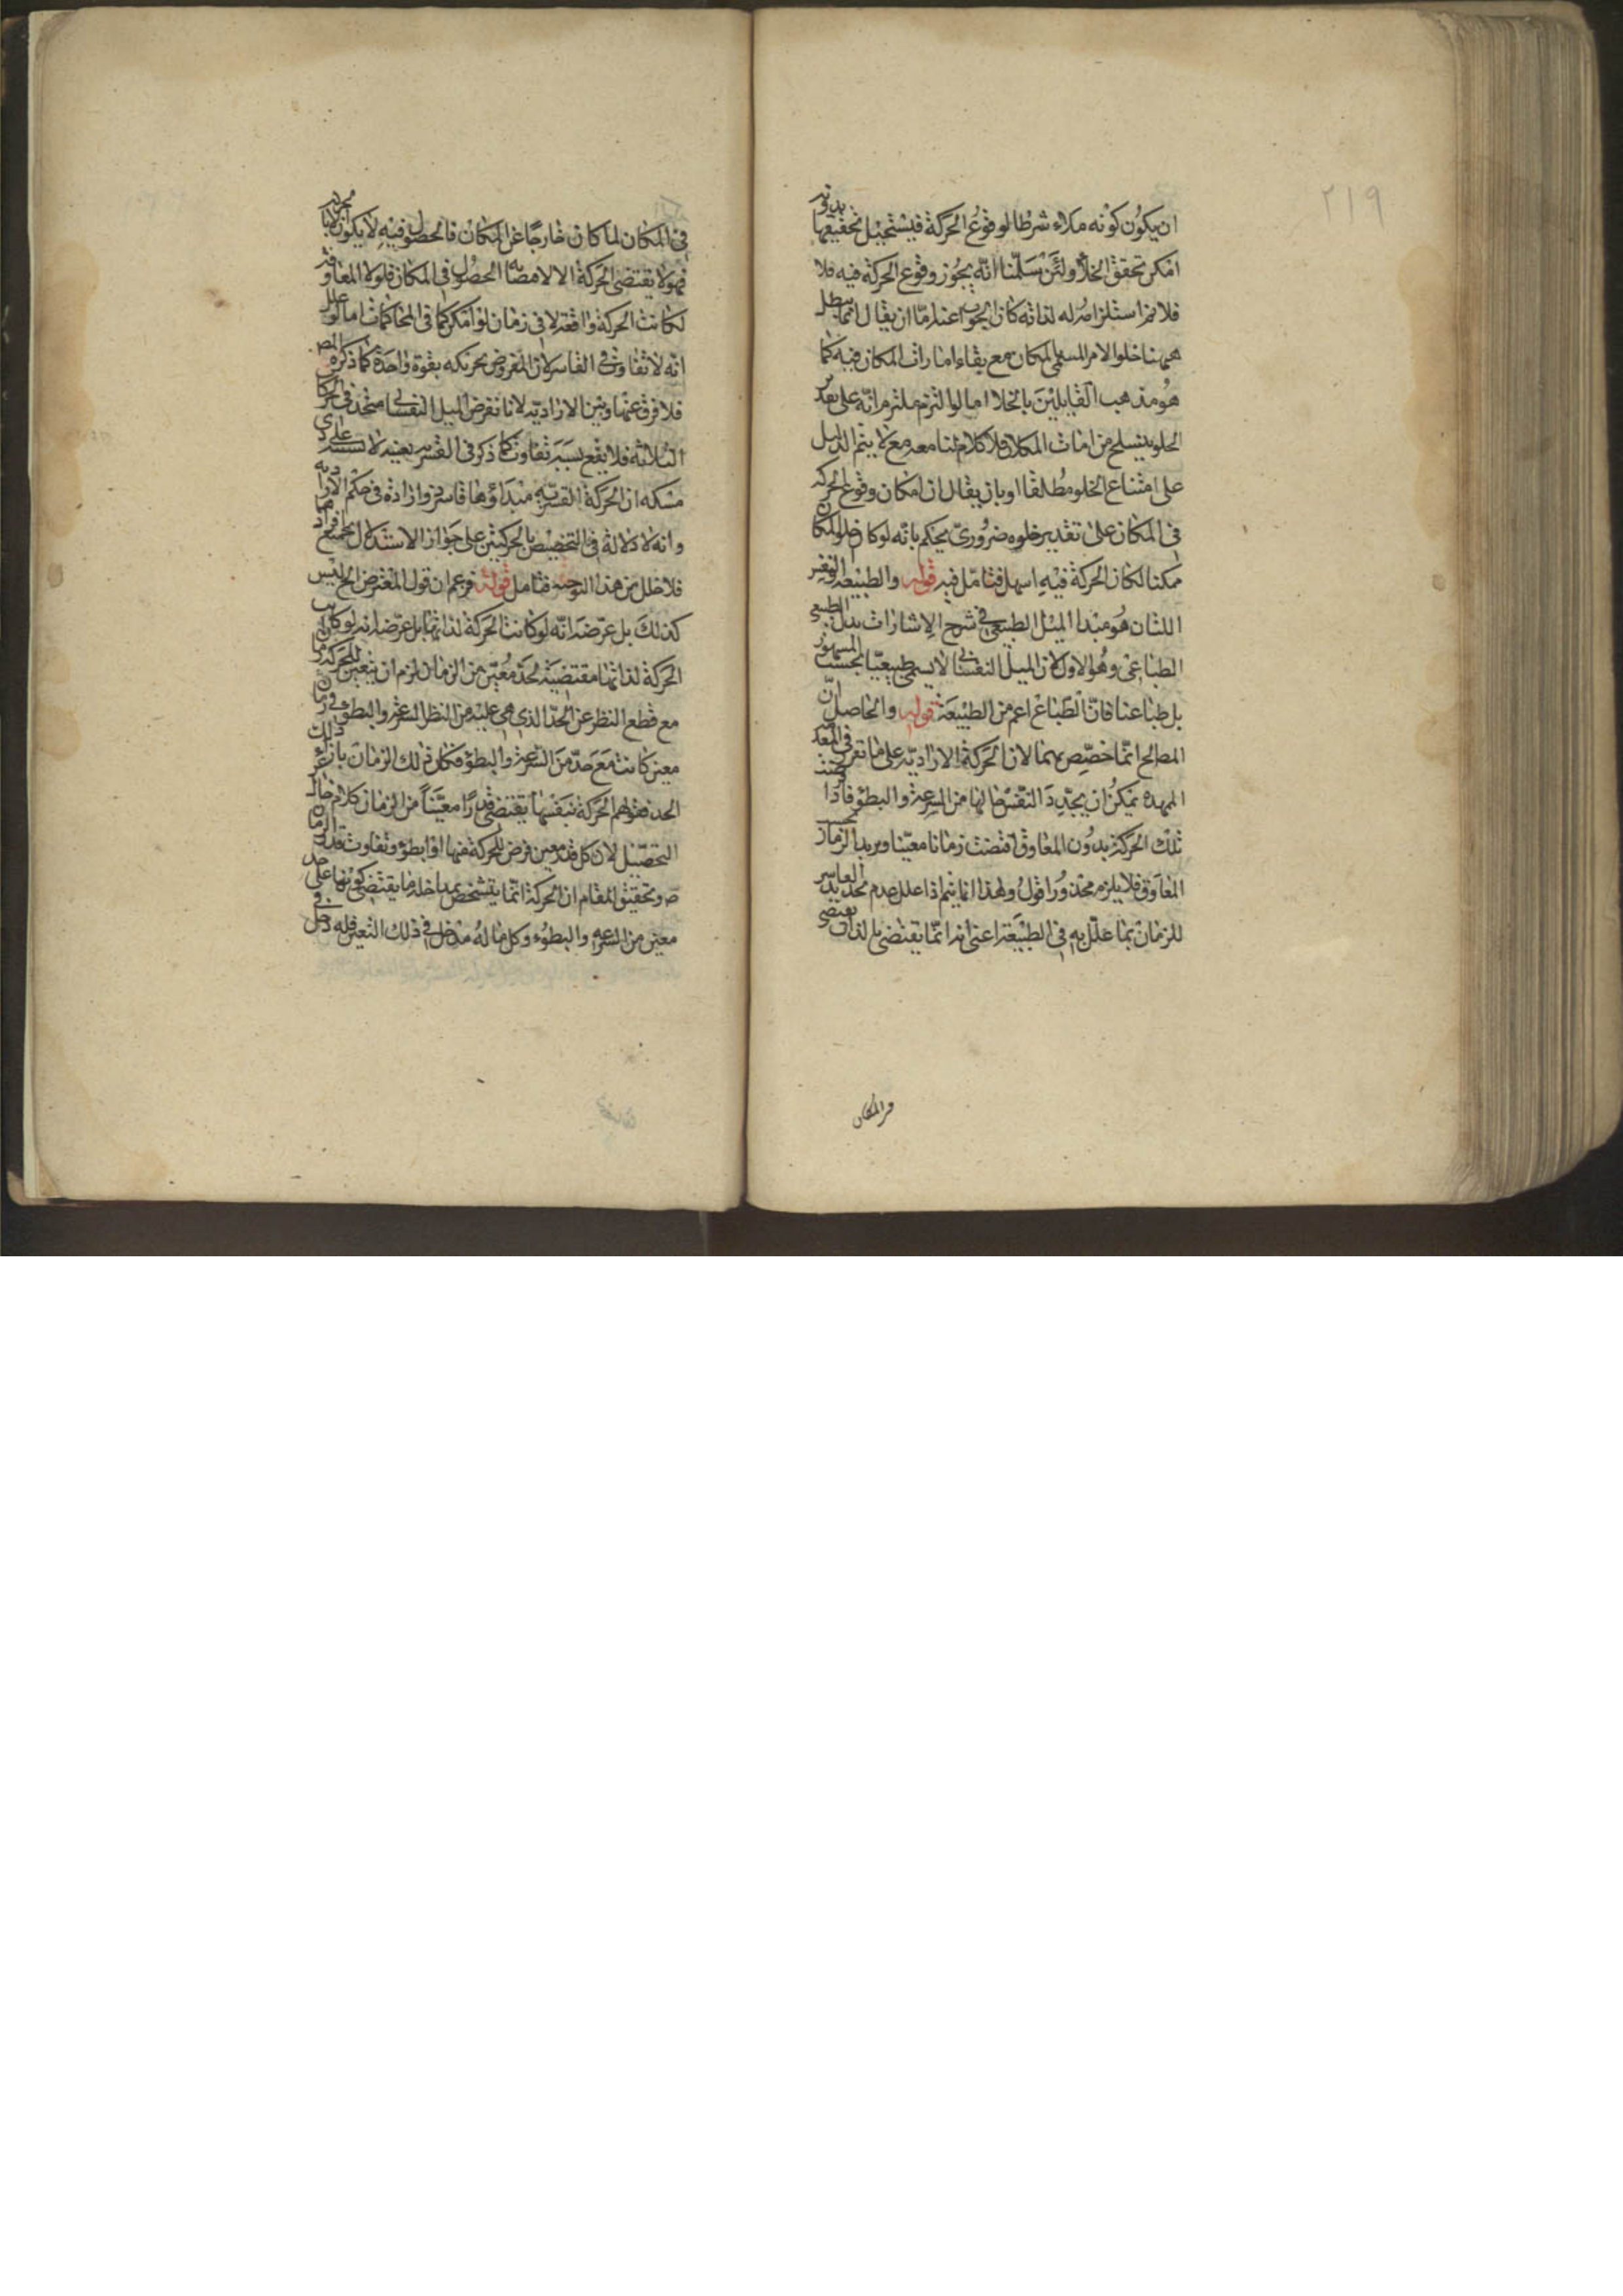 ٢١٩
ان يكون كونه ملاء شرطا لوقوع الحركة فيستحيل تحقيقها بدونه
امكن تحقق الخلاء ولئن سلمنا انه يجوز وقوع الحركة فيه فلا
فلانم استلزامه له لذاته كان الجواب عنه اما ان يقال انما يبطل
ههنا خلو الامر المسمى المكان مع بقاء امارات المكان فيه كما
هو مذهب القايلين بالخلا اما لو التزم ملتزم انه على تقدير
الخلو ينسلخ من امارات المكان فلا كلام لنا معه مع لا يتم الدليل
على امتناع الخلو مطلقا او بان يقال ان امكان وقوع الحركة
فى المكان على تقدير خلوه ضرورى يحكم بانه لو كان خلو المكان
ممكنا لكان الحركة فيه اسهل فتامل فيه قوله والطبيعة والنفس
اللتان هو مبدا الميل الطبيعى فى شرح الاشارات بدل الطبيعى
الطباعى وهو الاولى لان الميل النفسانى لا يسمى طبيعيا بحسب المشهور
بل طباعنا فان الطباع اعم من الطبيعة قوله والحاصل ان
المصالح انما خصص بهما لان الحركة الارادية على ما تقرر فى المقد
الممهدة يمكن ان يحدد النفس حالها من السرعة والبطؤ فاذا
تلك الحركة بدون المعاوق اقتضت زمانا معينا ويريد الزمان بحسب
المعاوق فلا يلزم محذور اقول ولهذا انما يتم اذا علل عدم تحديد القاسر
للزمان بما علل به فى الطبيعة اعنى انه انما يقتضى بالذات
فى المكان
فى المكان لما كان خارجا عن المكان فالحصول فيه لا يكون
فهو لا يقتضى الحركة الا لاقتضائه الحصول فى المكان فلولا المعاوقة
لكانت الحركة واقعة لا فى زمان لو امكن كما فى المحاكمات اما لو علل
انه لا تفاوت فى القاسر لان المفروض تحريكه بقوة واحدة كما ذكره المص
فلا فرق عنها وبين الارادية لانا نفرض الميل النفسانى متحد فى الحركات
الثلاثة فلا يقع بسببه تفاوت كما ذكر فى القسرى بعينه لا
مسكه ان الحركة القسرية مبداؤها قاسر وارادة فى حكم الارادية
وانه لا دلالة فى التخصيص بالحركتين على جواز الاستدلال بجميع افراد
فلا خلل من هذا التوجيه فتامل قوله فزعم ان قول المعترض الخ ليس
كذلك بل غرضه انه لو كانت الحركة لذاتها بل غرضه انه لو كان
الحركة لذاتها مقتضية لحد معين من الزمان لزم ان يتعين للحركة زمان
مع قطع النظر عن الحد الذى هى عليه من النظر السرعة والبطؤ فى زمان
معين كانت مع حد من السرعة والبطؤ فكان ذلك الزمان بازاء ذلك
الحد فقولهم الحركة بنفسها يقتضى قدرا معينا من الزمان كلام خال عن
التحصيل لان كل قدر معين فرض للحركة فيها او ابطؤ وتفاوت قدر الزمان
ص وتحقيق المقام ان الحركة انما يتشخص بمداخلة ما يقتضى كونها على حد
معين من السرعة والبطوء وكل ما له مدخل فى ذلك التعين فله دخل فى و